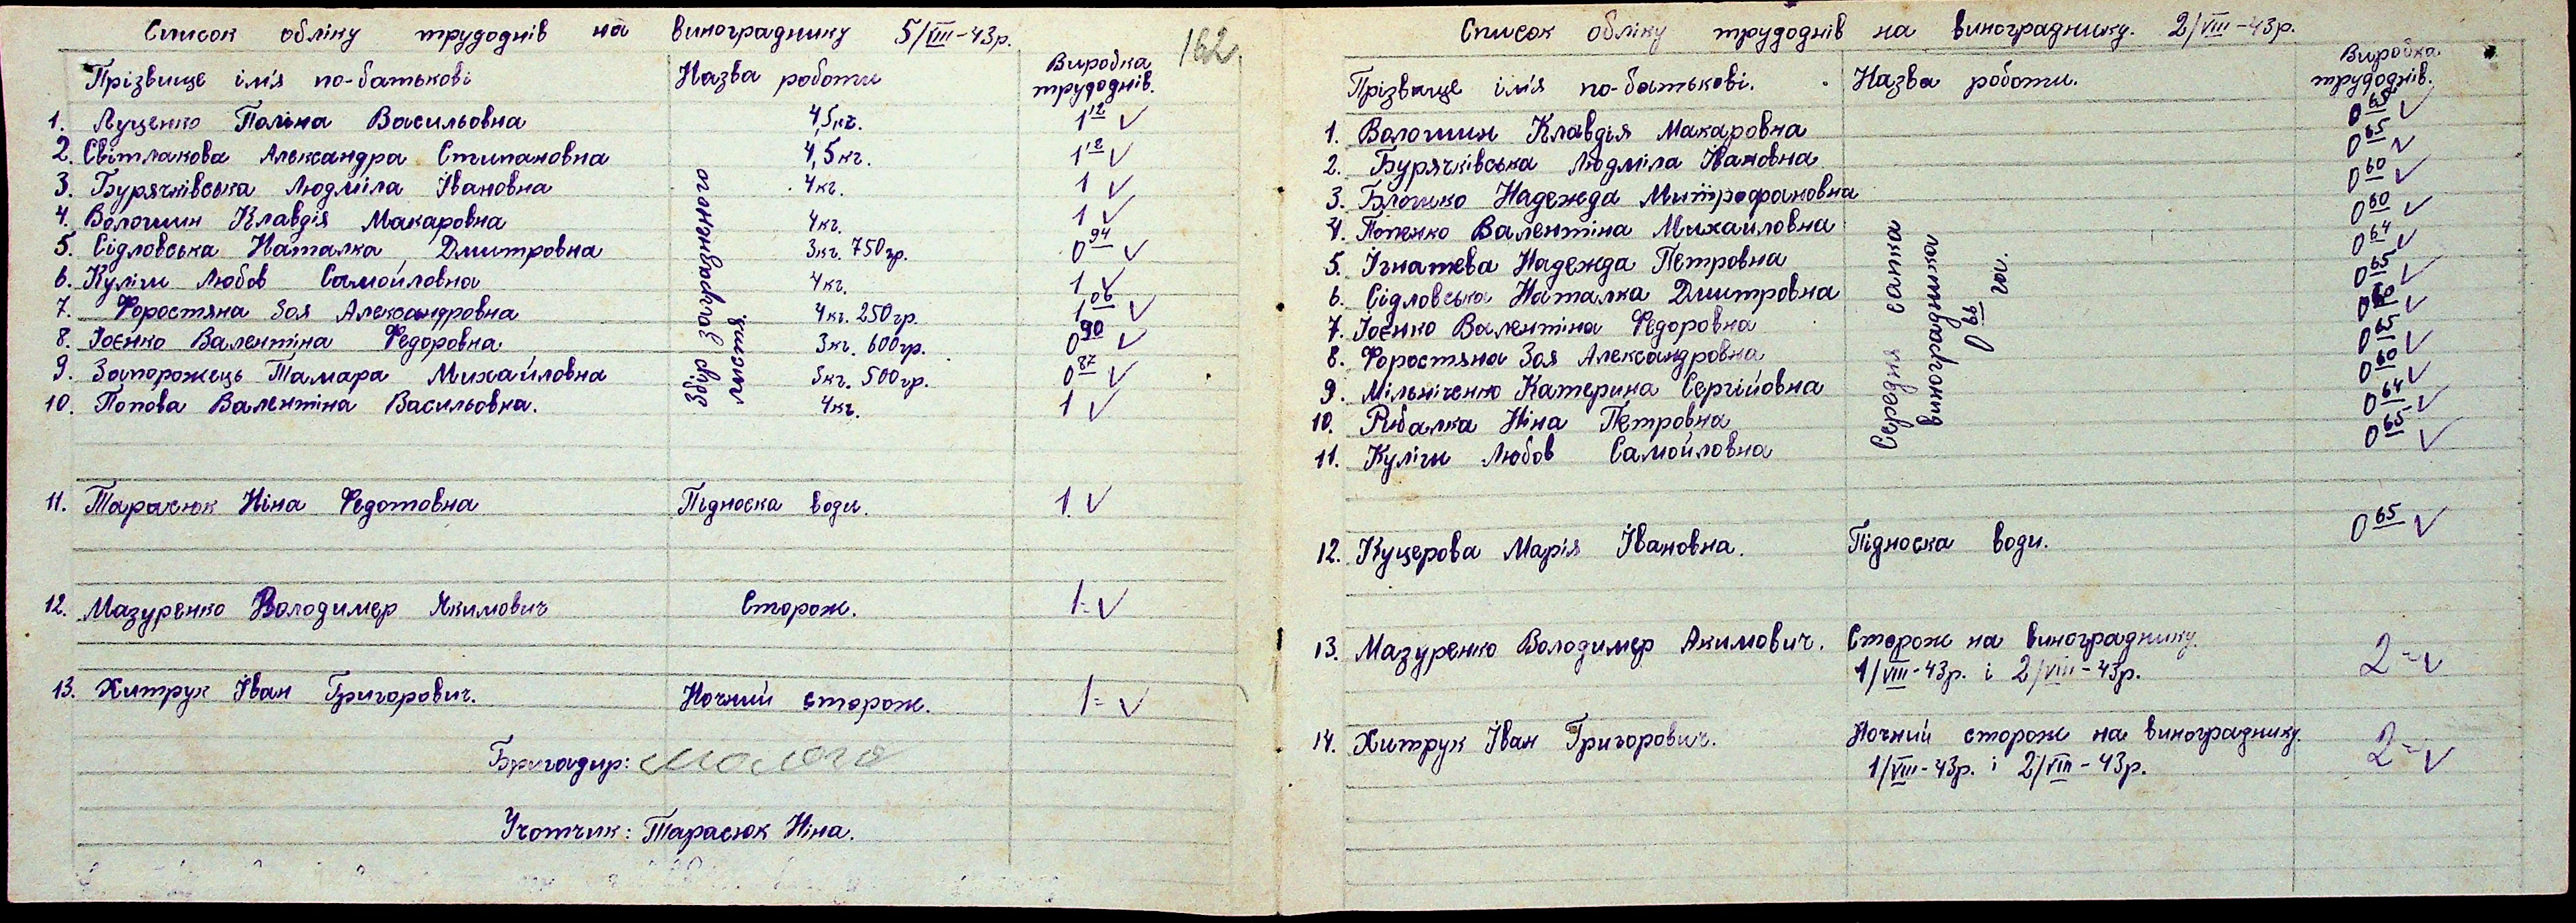 Список обліку трудоднів на винограднику 5/VIII-43р.
162
Прізвище ім'я по-батькові Назва роботи Виробка трудоднів.
1. Луценко Поліна Васильовна 4,5кг. 1 12 ✓
2. Світлакова Александра Степановна 4,5кг. 1 12 ✓
3. Бурячківська Людміла Івановна 4кг. 1 ✓
4. Волошин Клавдія Макаровна 4кг. 1 ✓
5. Сідловська Наталка Дмитровна 3кг. 750гр. 0 94 ✓
6. Куліги Любов Самойловна 4кг. 1 ✓
7. Форостяна Зоя Александровна 4кг. 250гр. 1 06 ✓
8. Зоєнко Валентіна Федоровна 3кг. 600гр. 0 90 ✓
9. Запорожець Тамара Михайловна 3кг. 500гр. 0 87 ✓
10. Попова Валентіна Васильовна. 4кг. 1 ✓
Збір виноградного листя
11. Тарасюк Ніна Федотовна Підноска води. 1 ✓
12. Мазуренко Володимер Якимович Сторож. 1= ✓
13. Хитрук Іван Григорович. Ночний сторож. 1= ✓
Бригадир:
Учотчик: Тарасюк Ніна.
Список обліку трудоднів на винограднику. 2/VIII-43р.
Прізвище ім'я по-батькові. Назва роботи. Виробка трудоднів.
1. Волошин Клавдія Макаровна 0 65 ✓
2. Бурячківська Людміла Івановна 0 65 ✓
3. Блошко Надежда Митрофановна 0 60 ✓
4. Попенко Валентіна Михайловна 0 60 ✓
5. Ігнатева Надежда Петровна 0 64 ✓
6. Сідловська Наталка Дмитровна 0 65 ✓
7. Зоєнко Валентіна Федоровна 0 60 ✓
8. Форостяна Зоя Александровна 0 65 ✓
9. Мільніченко Катерина Сергійовна 0 60 ✓
10. Рибалка Ніна Петровна 0 64 ✓
11. Куліги Любов Самойловна 0 65 ✓
виноградника
12. Куцерова Марія Івановна. Підноска води. 0 65 ✓
13. Мазуренко Володимер Акимович. Сторож на винограднику.
1/VIII-43р. і 2/VIII-43р. 2= ✓
14. Хитрук Іван Григорович. Ночний сторож на винограднику.
1/VIII-43р. і 2/VIII-43р. 2= ✓